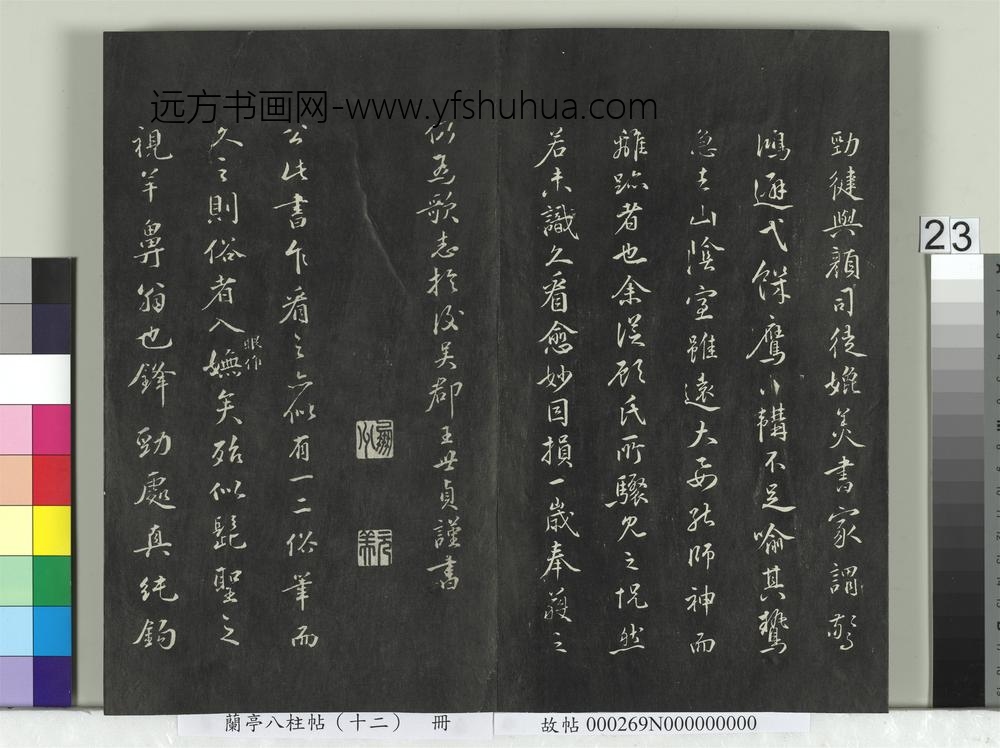 勁健與顏司徒媲美書家謂驚
鴻避弋饑鷹下韝不足喻其鷙
急去山陰室雖遠大要能師神而
離跡者也余從顧氏所驟見之怳然
若未識久看愈妙因損一歲奉獲之
仍爲歌志於後吳郡王世貞謹書
公此書乍看之亦似有一二俗筆而
久之則俗者入眼作嫵矣殆似髭聖之
視羊鼻翁也鋒勁處真純鉤
远方书画网-www.yfshuhua.com
23
蘭亭八柱帖（十二） 冊
故帖 000269N000000000